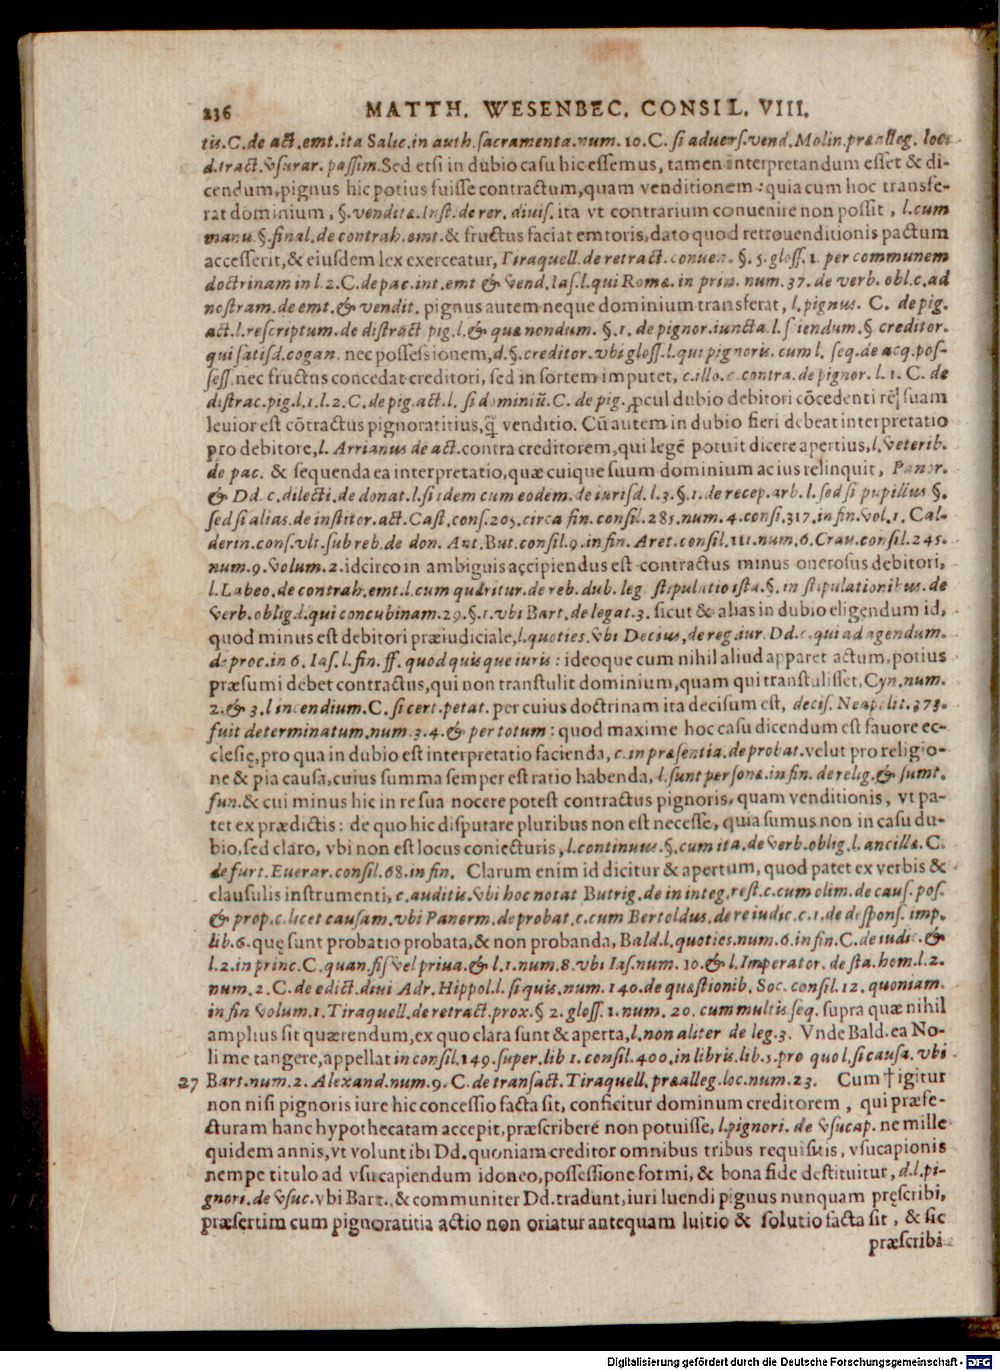 236 MATTH. WESENBEC. CONSIL. VIII.
tis. C. de act. emt. ita Salic. in auth. sacramenta. num. 10. C. si advers. vend. Molin. præalleg. loco
d. tract. vsurar. passim. Sed etsi in dubio casu hic essemus, tamen interpretandum esset & di-
cendum, pignus hic potius fuisse contractum, quam venditionem: quia cum hoc transfe-
rat dominium, §. venditæ. Inst. de rer. divis. ita vt contrarium conuenire non possit, l. cum
manu. §. final. de contrah. emt. & fructus faciat emtoris, dato quod retrouenditionis pactum
accesserit, & eiusdem lex exerceatur, Tiraquell. de retract. conuen. §. 5. gloss. 1. per communem
doctrinam in l. 2. C. de pac. int. emt & vend. Ias. l. qui Romæ. in prin. num. 37. de verb. obl. c. ad
nostram. de emt. & vendit. pignus autem neque dominium transferat, l. pignus. C. de pig.
act. l. rescriptum. de distract pig. l. & quæ nondum. §. 1. de pignor. iuncta. l. sciendum. § creditor.
qui satisd. cogan. nec possessionem, d. §. creditor. vbi gloss. l. qui pignoris. cum l. seq. de acq. pos-
sess. nec fructus concedat creditori, sed in sortem imputet, c. illo. c. contra. de pignor. l. 1. C. de
distrac. pig. l. 1. l. 2. C. de pig. act. l. si dominiū. C. de pig. ꝓcul dubio debitori cōcedenti rē suam
leuior est cōtractus pignoratitius, q̃ venditio. Cū autem in dubio fieri debeat interpretatio
pro debitore, l. Arrianus de act. contra creditorem, qui legē potuit dicere apertius, l. veterib.
de pac. & sequenda ea interpretatio, quæ cuique suum dominium ac ius relinquit, Panor.
& Dd. c. dilecti. de donat. l. si idem cum eodem. de iurisd. l. 3. §. 1. de recep. arb. l. sed si pupillus §.
sed si alias. de institor. act. Cast. cons. 205. circa fin. consil. 285. num. 4. consi. 317. in fin. vol. 1. Cal-
derin. cons. vlt. sub reb. de don. Ant. But. consil. 9. in fin. Aret. consil. 111. num. 6. Crau. consil. 245.
num. 9. volum. 2. idcirco in ambiguis accipiendus est contractus minus onerosus debitori,
l. Labeo. de contrah. emt. l. cum quæritur. de reb. dub. leg. stipulatio ista. §. in stipulationibus. de
verb. oblig. l. qui concubinam. 29. §. 1. vbi Bart. de legat. 3. sicut & alias in dubio eligendum id,
quod minus est debitori præiudiciale, l. quoties. vbi Decius, de reg. iur. Dd. c. qui ad agendum.
de proc. in 6. Ias. l. fin. ff. quod quisque iuris: ideoque cum nihil aliud apparet actum, potius
præsumi debet contractus, qui non transtulit dominium, quam qui transtulisset, Cyn. num.
2. & 3. l incendium. C. si cert. petat. per cuius doctrinam ita decisum est, decis. Neapolit. 373.
fuit determinatum. num. 3. 4. & per totum: quod maxime hoc casu dicendum est fauore ec-
clesię, pro qua in dubio est interpretatio facienda, c. in præsentia. de probat. velut pro religio-
ne & pia causa, cuius summa semper est ratio habenda, l. sunt personæ. in fin. de relig. & sumt.
fun. & cui minus hic in re sua nocere potest contractus pignoris, quam venditionis, vt pa-
tet ex prædictis: de quo hic disputare pluribus non est necesse, quia sumus non in casu du-
bio, sed claro, vbi non est locus coniecturis, l. continuus. §. cum ita. de verb. oblig. l. ancillæ. C.
de furt. Euerar. consil. 68. in fin. Clarum enim id dicitur & apertum, quod patet ex verbis &
clausulis instrumenti, c. auditis. vbi hoc notat Butrig. de in integ. rest. c. cum olim. de caus. pos.
& prop. c. licet causam. vbi Panorm. de probat. c. cum Bertoldus. de re iudic. c. 1. de despons. imp.
lib. 6. quę sunt probatio probata, & non probanda, Bald. l. quoties. num. 6. in fin. C. de iudic. &
l. 2. in princ. C. quan. fis. vel priua. & l. 1. num. 8. vbi Ias. num. 10. & l. Imperator. de sta. hom. l. 2.
num. 2. C. de edict. diui Adr. Hippol. l. si quis. num. 140. de quæstionib. Soc. consil. 12. quoniam.
in fin volum. 1. Tiraquell. de retract. prox. § 2. gloss. 1. num. 20. cum multis seq. supra quæ nihil
amplius sit quærendum, ex quo clara sunt & aperta, l. non aliter de leg. 3. Vnde Bald. ea No-
li me tangere, appellat in consil. 149. super. lib 1. consil. 400. in libris. lib. 5. pro quo l. si causa. vbi
27 Bart. num. 2. Alexand. num. 9. C. de transact. Tiraquell. præalleg. loc. num. 23. Cum † igitur
non nisi pignoris iure hic concessio facta sit, conficitur dominum creditorem, qui præfe-
cturam hanc hypothecatam accepit, præscribere non potuisse, l. pignori. de vsucap. ne mille
quidem annis, vt volunt ibi Dd. quoniam creditor omnibus tribus requisitis, vsucapionis
nempe titulo ad vsucapiendum idoneo, possessione formi, & bona fide destituitur, d. l. pi-
gnori. de vsuc. vbi Bart. & communiter Dd. tradunt, iuri luendi pignus nunquam pręscribi,
præsertim cum pignoratitia actio non oriatur antequam luitio & solutio facta sit, & sic
præscribi
Digitalisierung gefördert durch die Deutsche Forschungsgemeinschaft - DFG